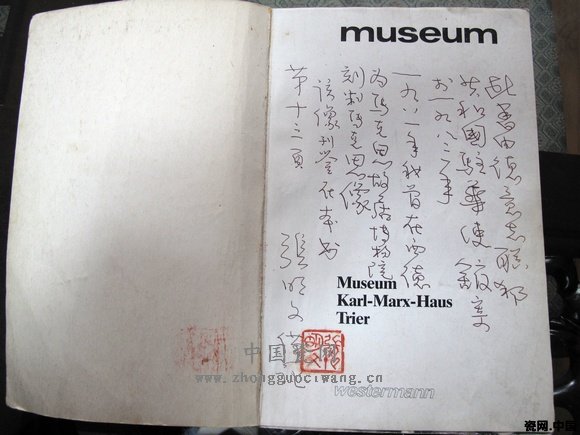 museum
此書由德意志聯邦
共和國駐華使館寄
於一九八三年
一九八一年我曾在西德
为馬克思故居博物院
刻制馬克思像
該像刊登在本书
第十三頁
張明文
Museum
Karl-Marx-Haus
Trier
westermann
中国瓷网
www.zhongguociwang.cn
瓷网.中国